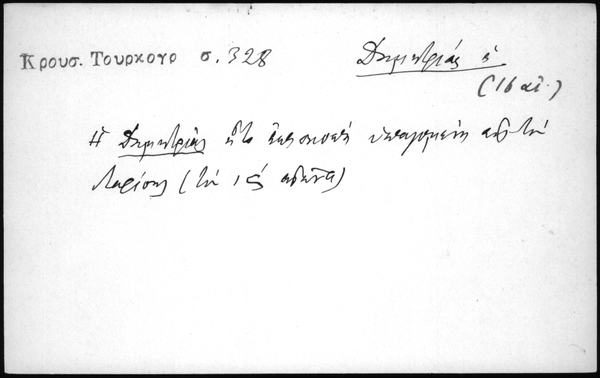 Κρουσ. Τουρκογρ σ. 328
Δημητριάς ἡ
(16 αἰ.)
Ἡ Δημητριὰς ἦτο ἐπισκοπὴ ὑπαγομένη εἰς τὴν
Λαρίσης (τὸν ις αἰῶνα)